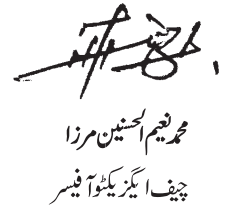 محمد نعیم الحسنین مرزا
چیف ایگزیکٹو آفیسر